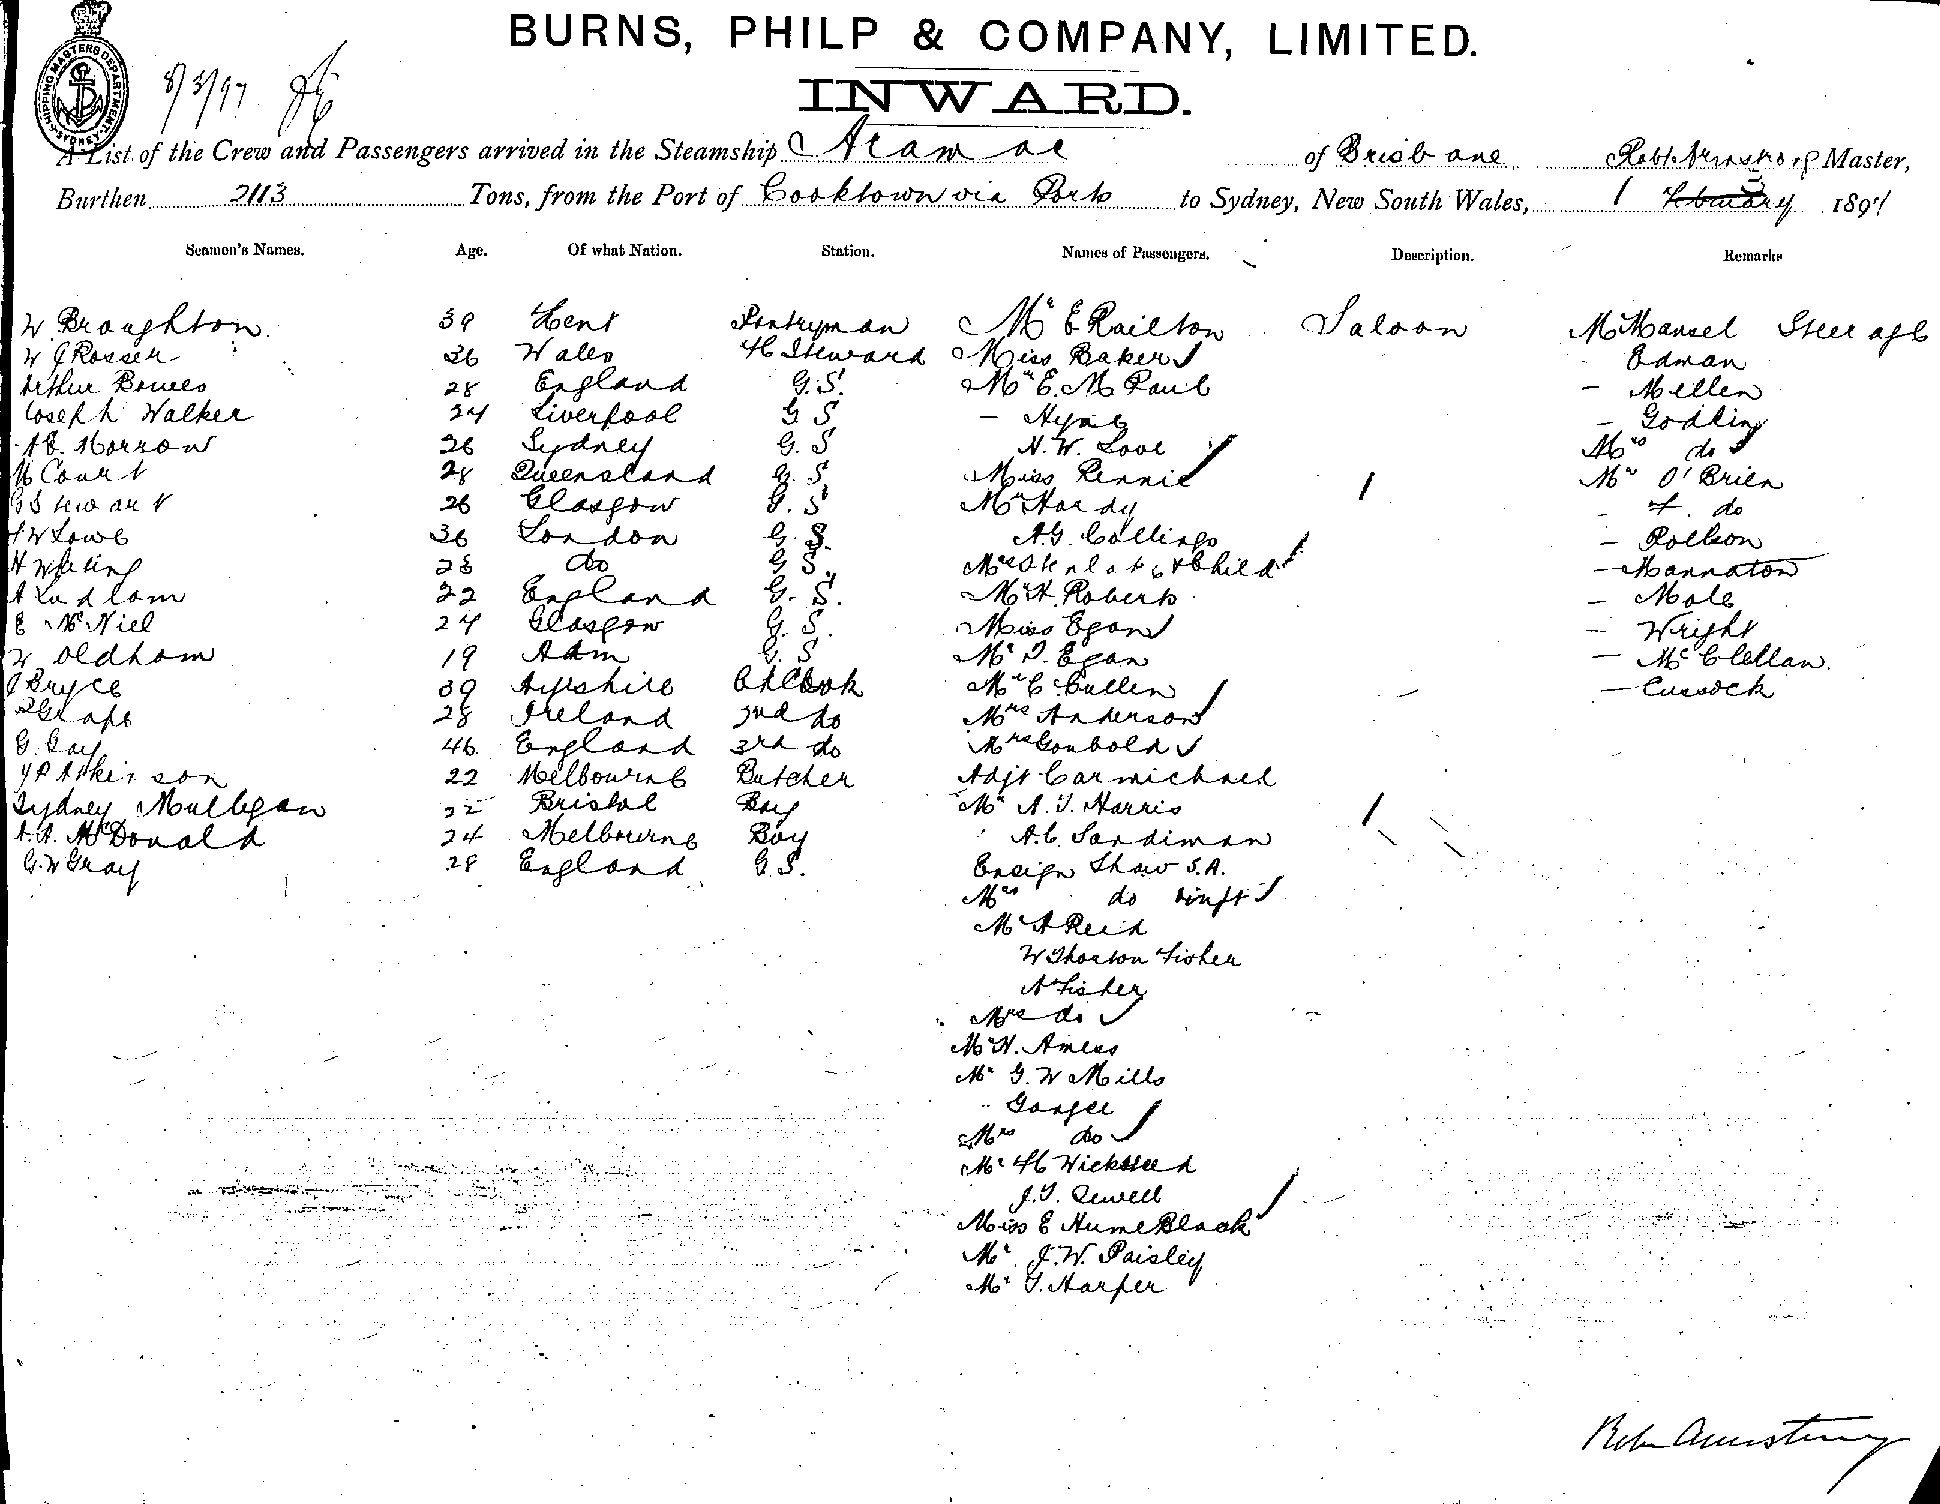 BURNS, PHILP & COMPANY, LIMITED.
INWARD.
SHIPPING MASTERS DEPARTMENT SYDNEY
8/3/97
A List of the Crew and Passengers arrived in the Steamship Aramac of Brisbane Robt Armstrong Master,
Burthen 2113 Tons, from the Port of Cooktown via Ports to Sydney, New South Wales, 1 February 3 1897
Seamen's Names. Age. Of what Nation. Station. Names of Passengers. Description. Remarks
W. Broughton. 39 Kent Pantryman Mr E Railton Saloon Mr Mansel Steerage
W J Rosser 36 Wales F C Steward Miss Baker - Edman
Arthur Bowes 28 England G.S. Mr E. M Paul - Mellen
Joseph Walker 24 Liverpool G S - Hyne - Godling
A E. Morrow 26 Sydney G. S H. W. Love Mrs do
M Court 28 Queensland G. S Miss Rennie Mr O'Brien
G Stewart 26 Glasgow G. S Mr Hardy - F. do
Lowe 36 London G. S. A.G. Collings - Rollson
H Whiting 28 do G S. Mrs & Child - Mannaton
A Ludlam 22 England G. S. Mr H. Roberts - Mole
E McNiel 24 Glasgow G. S. Miss Egan - Wright
W Oldham 19 Adm G. S Mr J. Egan - McClellan.
J Bryce 39 Ayrshire Ch Cook Mr C Cullen - Cussock
28 Ireland 2nd do Mrs Anderson
G. Gay 46 England 3rd do Mrs Gonbold
Atkinson 22 Melbourne Butcher Adjt Carmichael
Sydney Mulligan 22 Bristol Boy Mr A. J. Harris
A. A. McDonald 24 Melbourne Boy A. C. Sandiman
G. W Gray 28 England G.S. Ensign Shaw S.A.
Mrs do Inft
Mr A Reid
W Thornton Fisher
A Fisher
Mrs do
Mr H. Amess
Mr G. W Mills
" Goozee
Mrs do
Mr H Wicksteed
J. T. Sewell
Miss E Hume Black
Mr J. W. Paisley
Mr T. Harper
Robt Armstrong